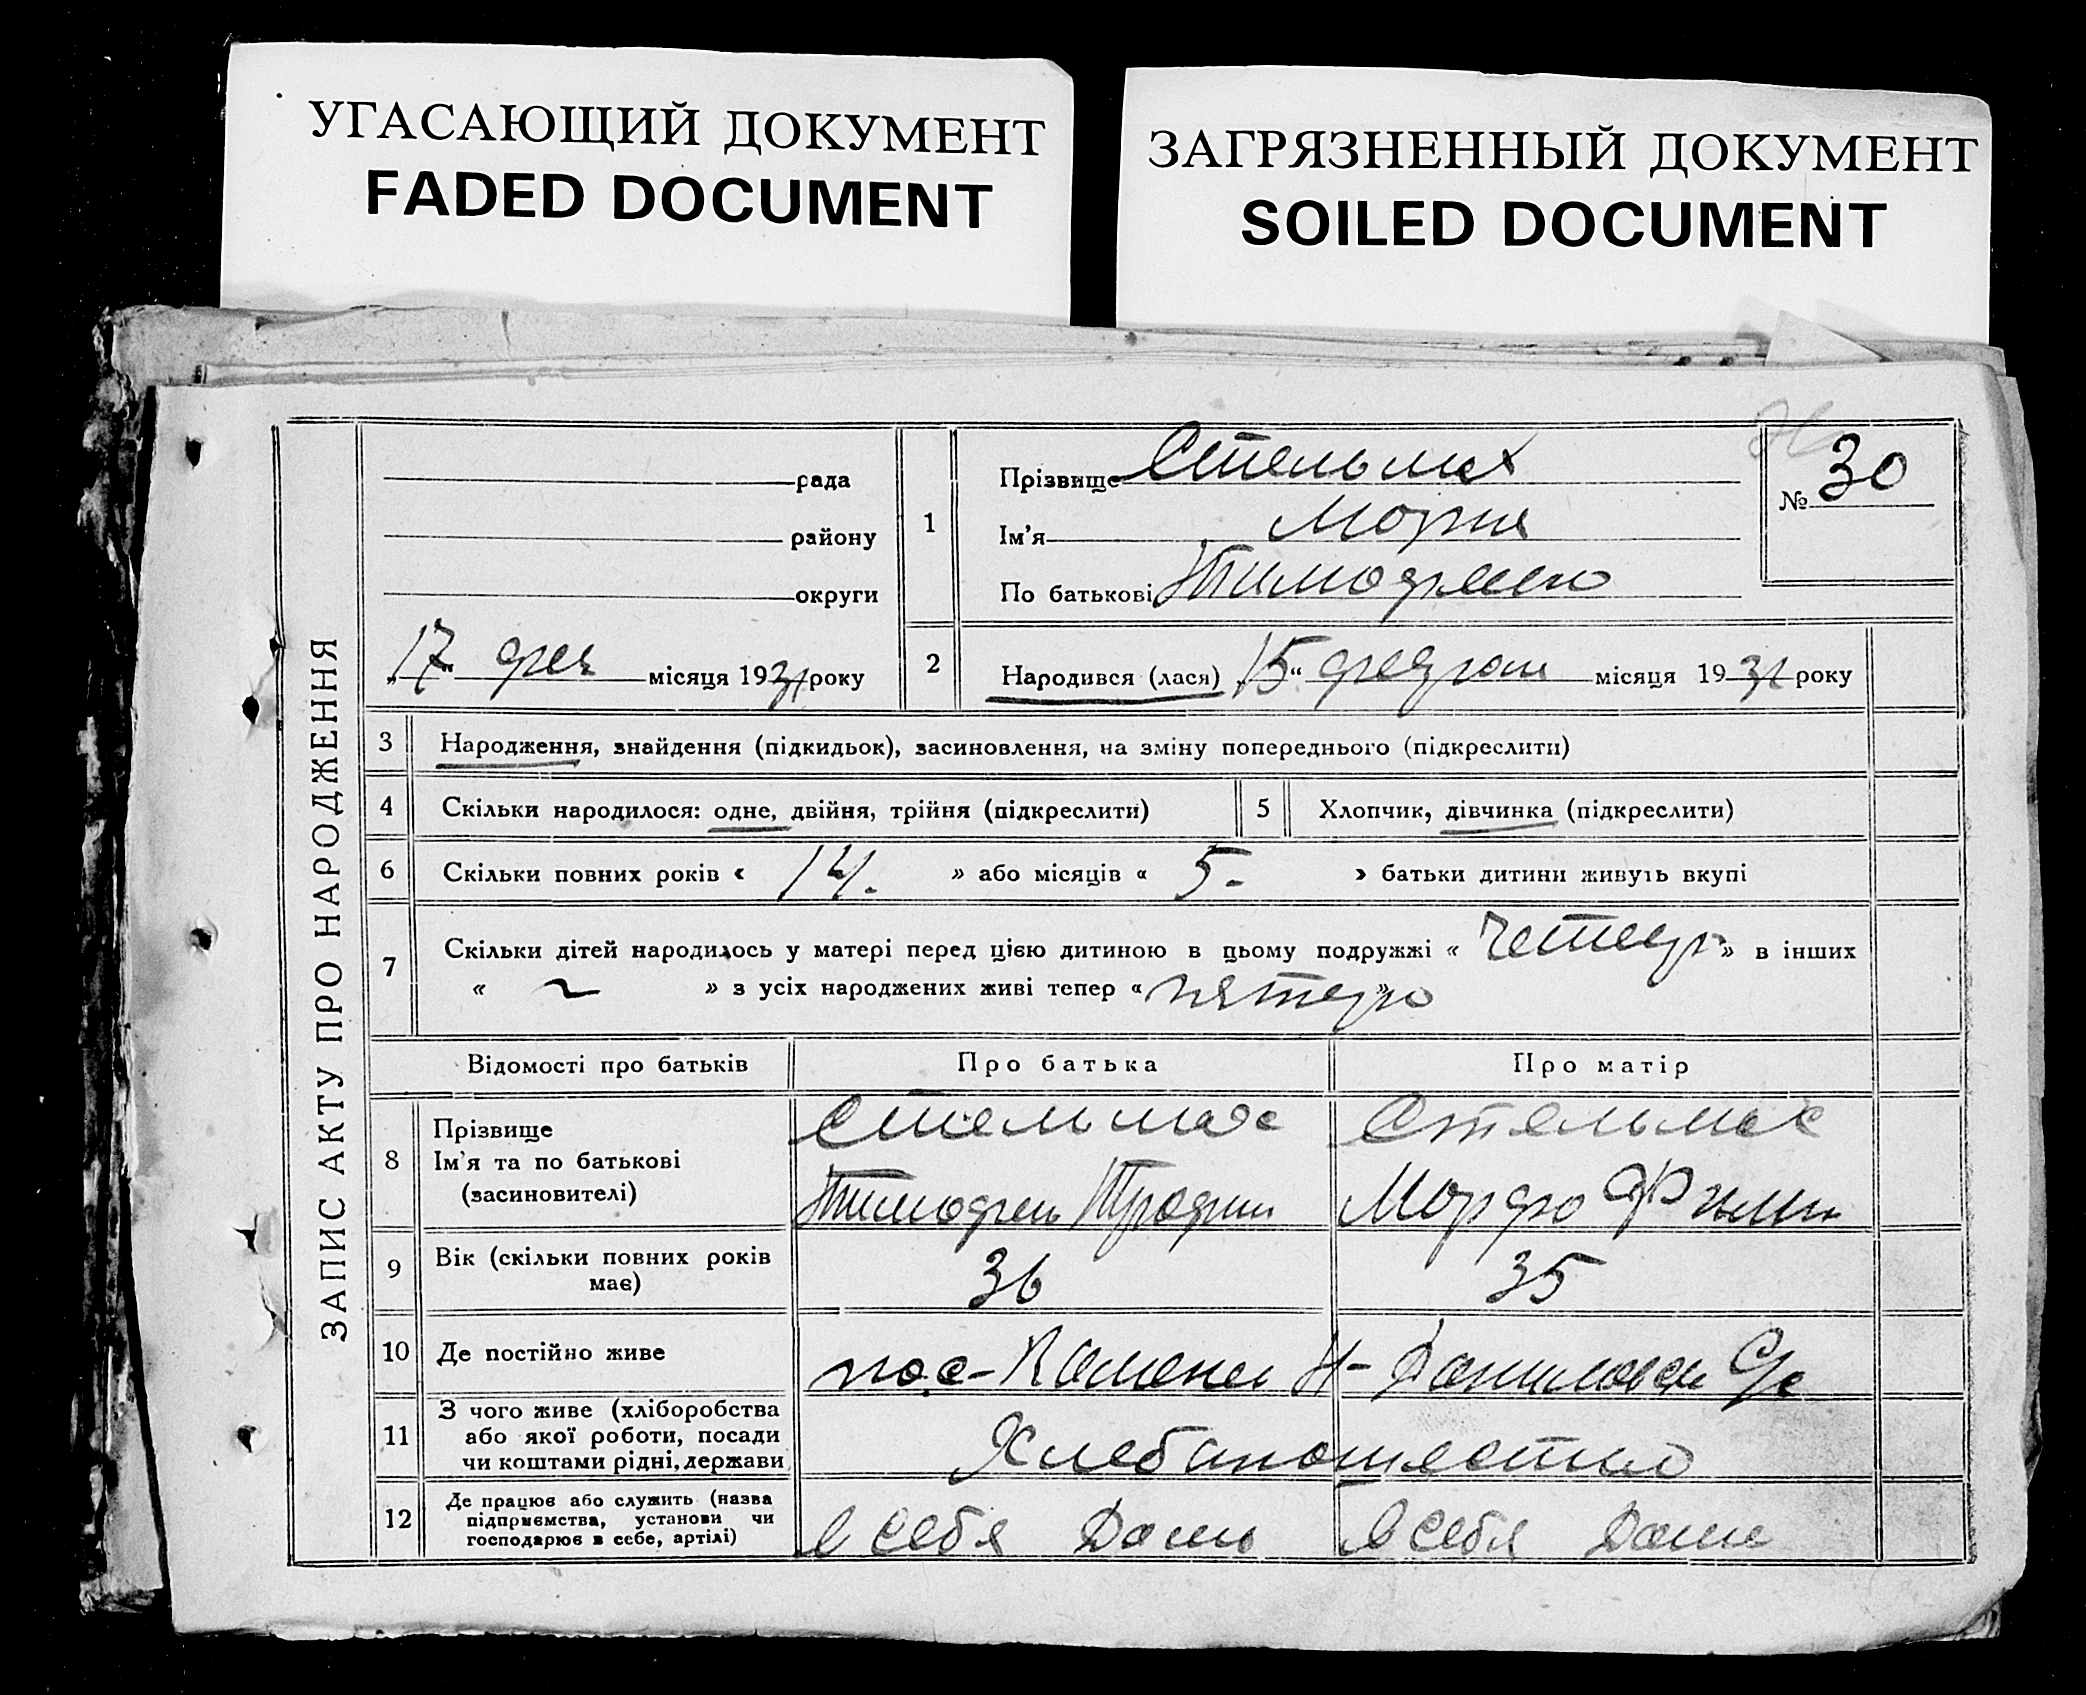 УГАСАЮЩИЙ ДОКУМЕНТ
FADED DOCUMENT
ЗАГРЯЗНЕННЫЙ ДОКУМЕНТ
SOILED DOCUMENT
ЗАПИС АКТУ ПРО НАРОДЖЕННЯ
рада
району
округи
„17“ фев місяця 1931 року
1
Прізвище Стельмах
Ім'я Мория
По батькові Тимофеено
№ 30
2
Народився (лася) „15“ февроля місяця 1931 року
3 Народження, знайдення (підкидьок), засиновлення, на зміну попереднього (підкреслити)
4 Скільки народилося: одне, двійня, трійня (підкреслити)
5 Хлопчик, дівчинка (підкреслити)
6 Скільки повних років « 14. » або місяців « 5- » батьки дитини живуть вкупі
7 Скільки дітей народилось у матері перед цією дитиною в цьому подружжі « » в інших
« ~ » з усіх народжених живі тепер « пятеро »
Відомості про батьків Про батька Про матір
8 Прізвище
Ім'я та по батькові
(засиновителі)
Стельмах
Тимофей Трофим
Стельмах
Морфо
9 Вік (скільки повних років
має)
36 35
10 Де постійно живе
пос-
11 З чого живе (хліборобства
або якої роботи, посади
чи коштами рідні, держави
Хлебопошество
12 Де працює або служить (назва
підприємства, установи чи
господарює в себе, артілі)
в себя Дома в себя Дома